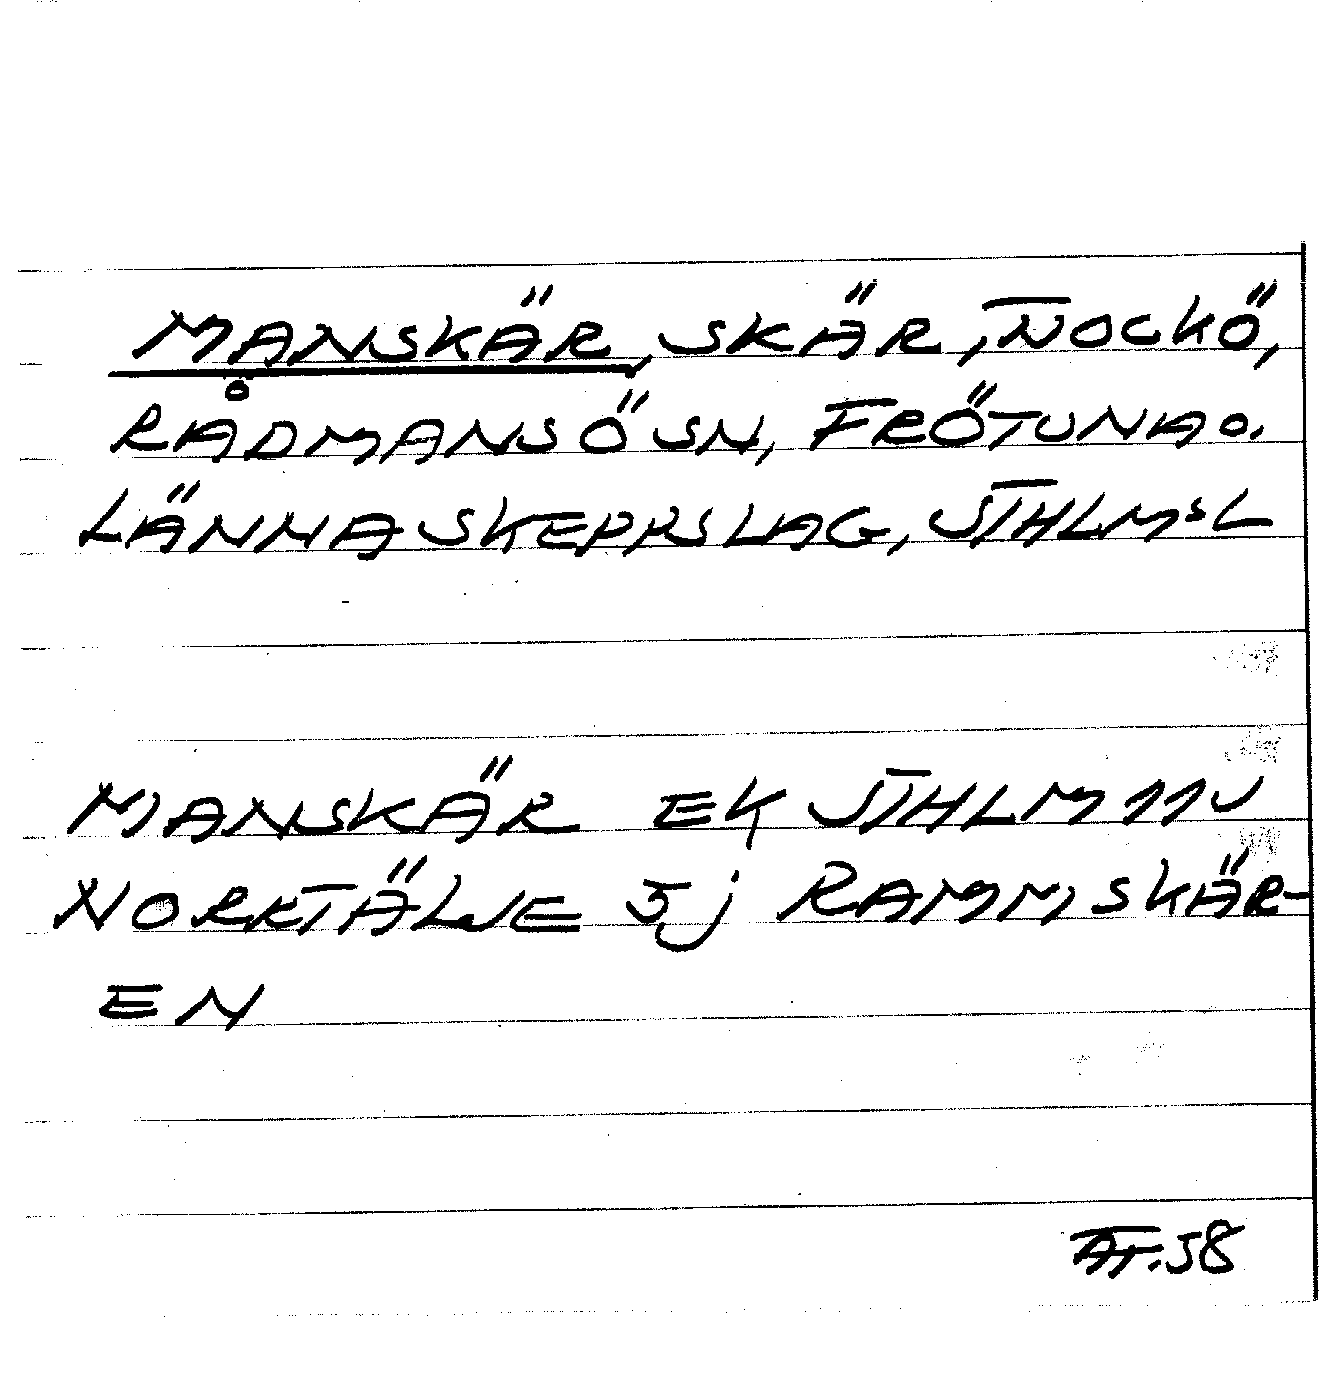 MANSKÄR, SKÄR, NOCKÖ,
RÅDMANSÖ SN, FRÖTUNA O.
LÄNNA SKEPPSLAG, STHLMSL
MANSKÄR EK STHLM 11 U
NORRTÄLJE 5j RAMMSKÄR-
EN
AT.58